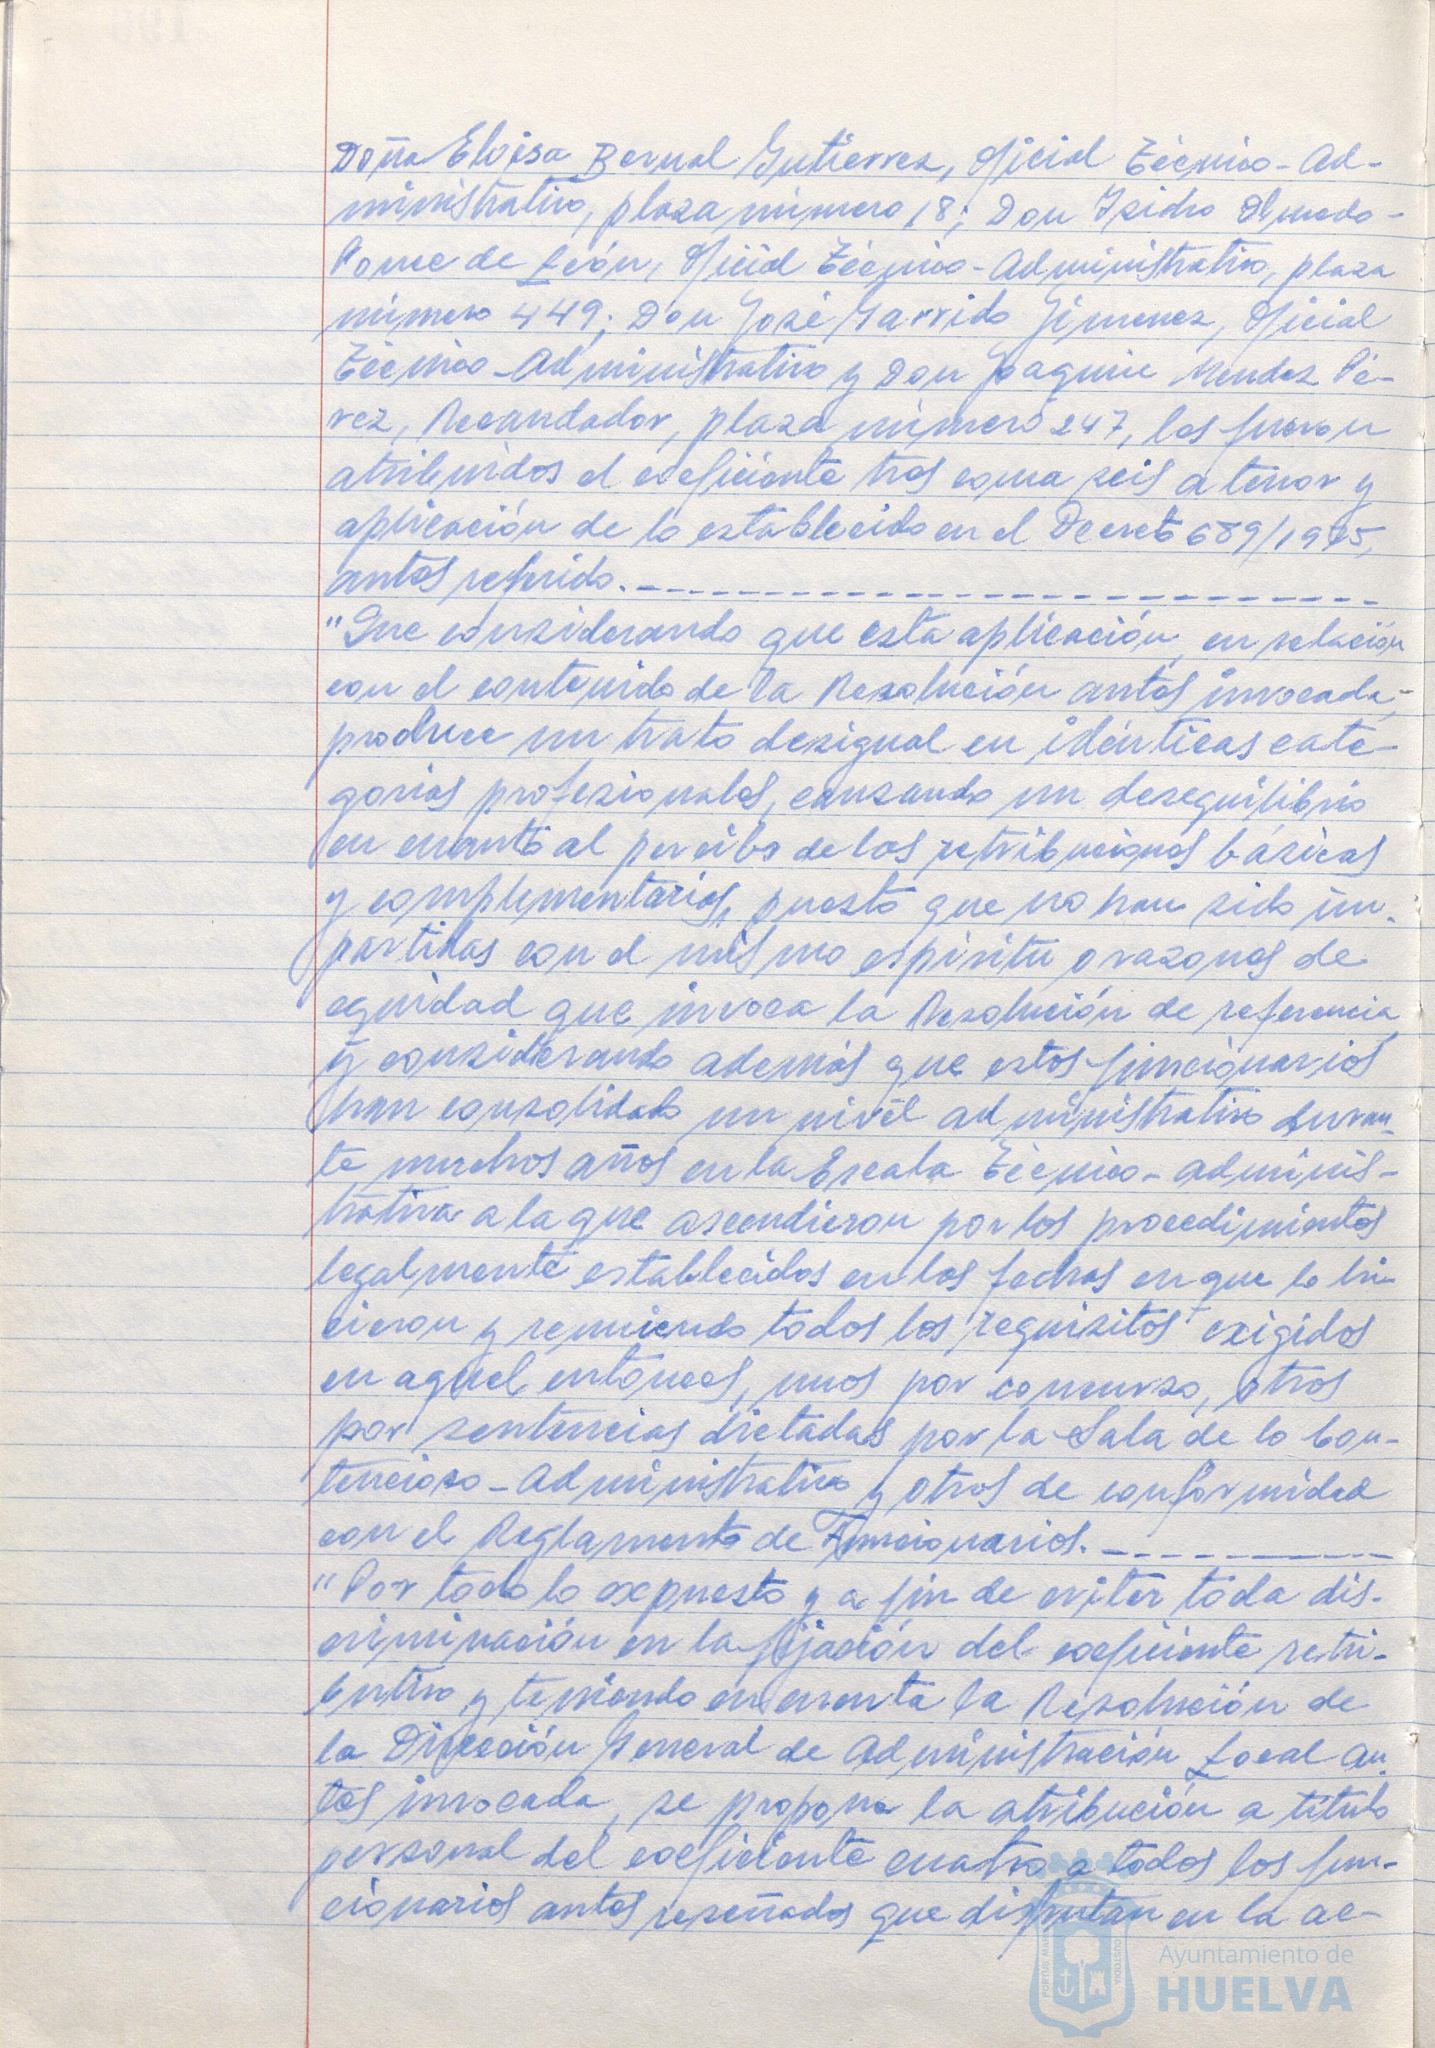 Doña Eloisa Bernal Gutierrez, Oficial Técnico-Ad-
ministrativo, plaza número 18; Don Isidro Olmedo-
Ponce de León, Oficial Técnico-Administrativo, plaza
número 449; Don José Garrido Jimenez, Oficial
Técnico-Administrativo y Don Joaquin Mendez Pé-
rez, Recaudador, plaza número 247, les fueron
atribuidos el coeficiente tres coma seis a tenor y
aplicación de lo establecido en el Decreto 689/1975,
antes referido.
"Que considerando que esta aplicación, en relación
con el contenido de la Resolución antes invocada,
produce un trato desigual en idénticas cate-
gorias profesionales, causando un desequilibrio
en cuanto al percibo de las retribuciones básicas
y complementarias, puesto que no han sido im-
partidas con el mismo espiritu o razones de
equidad que invoca la Resolución de referencia
y considerando además que estos funcionarios
han consolidado un nivel administrativo duran-
te muchos años en la Escala Técnico-adminis-
trativa a la que ascendieron por los procedimientos
legalmente establecidos en las fechas en que lo hi-
cieron y reuniendo todos los requisitos exigidos
en aquel entonces, unos por concurso, otros
por sentencias dictadas por la Sala de lo Con-
tencioso-Administrativo y otros de conformidad
con el Reglamento de Funcionarios.
"Por todo lo expuesto y a fin de evitar toda dis-
criminación en la fijación del coeficiente retri-
butivo y teniendo en cuenta la Resolución de
la Dirección General de Administración Local an-
tes invocada, se propone la atribución a titulo
personal del coeficiente cuatro a todos los fun-
cionarios antes reseñados que disfrutan en la ac-
Ayuntamiento de
HUELVA